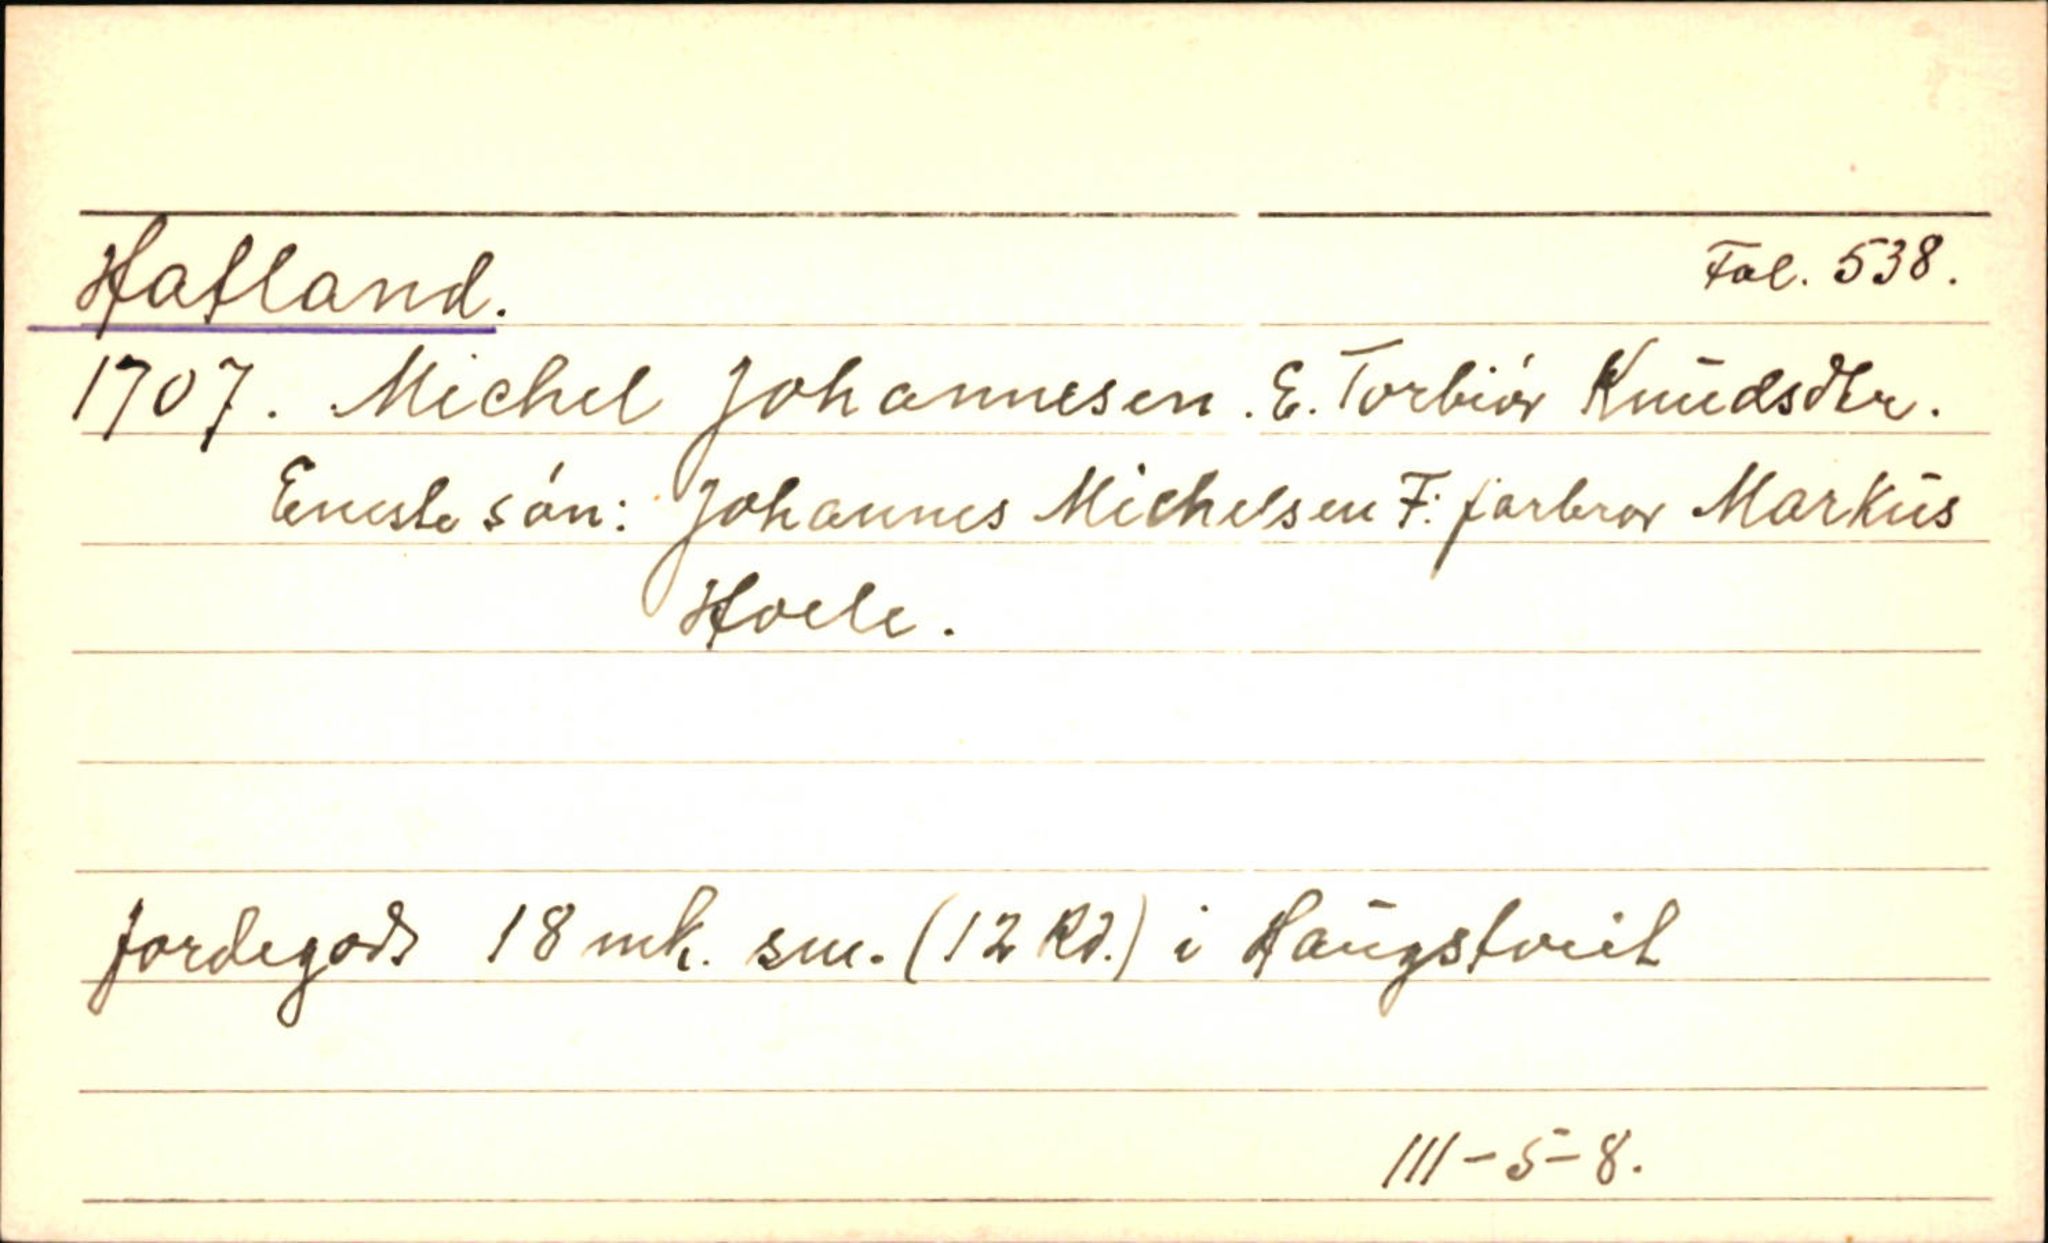 Hafland.
Fol. 538.
1707. Michel Johannesen. E. Torbiór Knūdsdtr.
Eneste són: Johannes Michelsen F: farbror Markūs
Hoele.
Jordegods 18 mk. sm. (12 Rd.) i Haūgstveit
III-5-8.